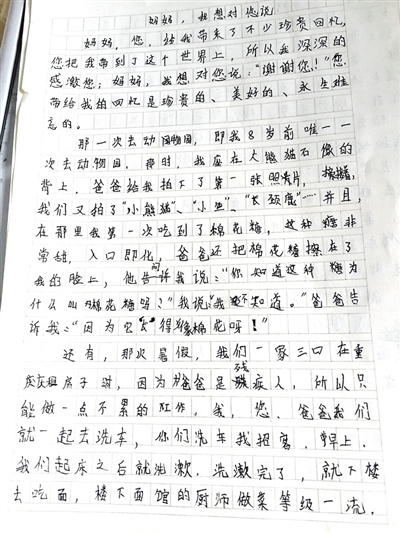 妈妈，我想对您说
妈妈，您，给我带来了不少珍贵回忆，
您把我带到了这个世界上，所以我深深的
感激您；妈妈，我想对您说：“谢谢您！”您
带给我的回忆是珍贵的、美好的、永生难
忘的。
那一次去动物园，即我8岁前唯一一
次去动物园，我座在大熊猫石像的
背上，爸爸给我拍下了第一张照片，接着，
我们又拍了“小熊猫”、“小鱼”、“长颈鹿”……并且，
在那里我第一次吃到了棉花糖，这种糖非
常甜，入口即化，爸爸还把棉花糖擦在了
我的脸上，他问我说：“你知道这种糖为
什么叫棉花糖吗？”我说“我不知道。”爸爸告
诉我：“因为它长得像棉花呀！”
还有，那次暑假，我们一家三口在重
庆租房子时，因为爸爸是残疾人，所以只
能做一点不累的工作，我，您、爸爸我们
就一起去洗车，你们洗车我招客，早上，
我们起床之后就洗漱，洗漱完了，就下楼
去吃面，楼下面馆的厨师做菜等级一流，